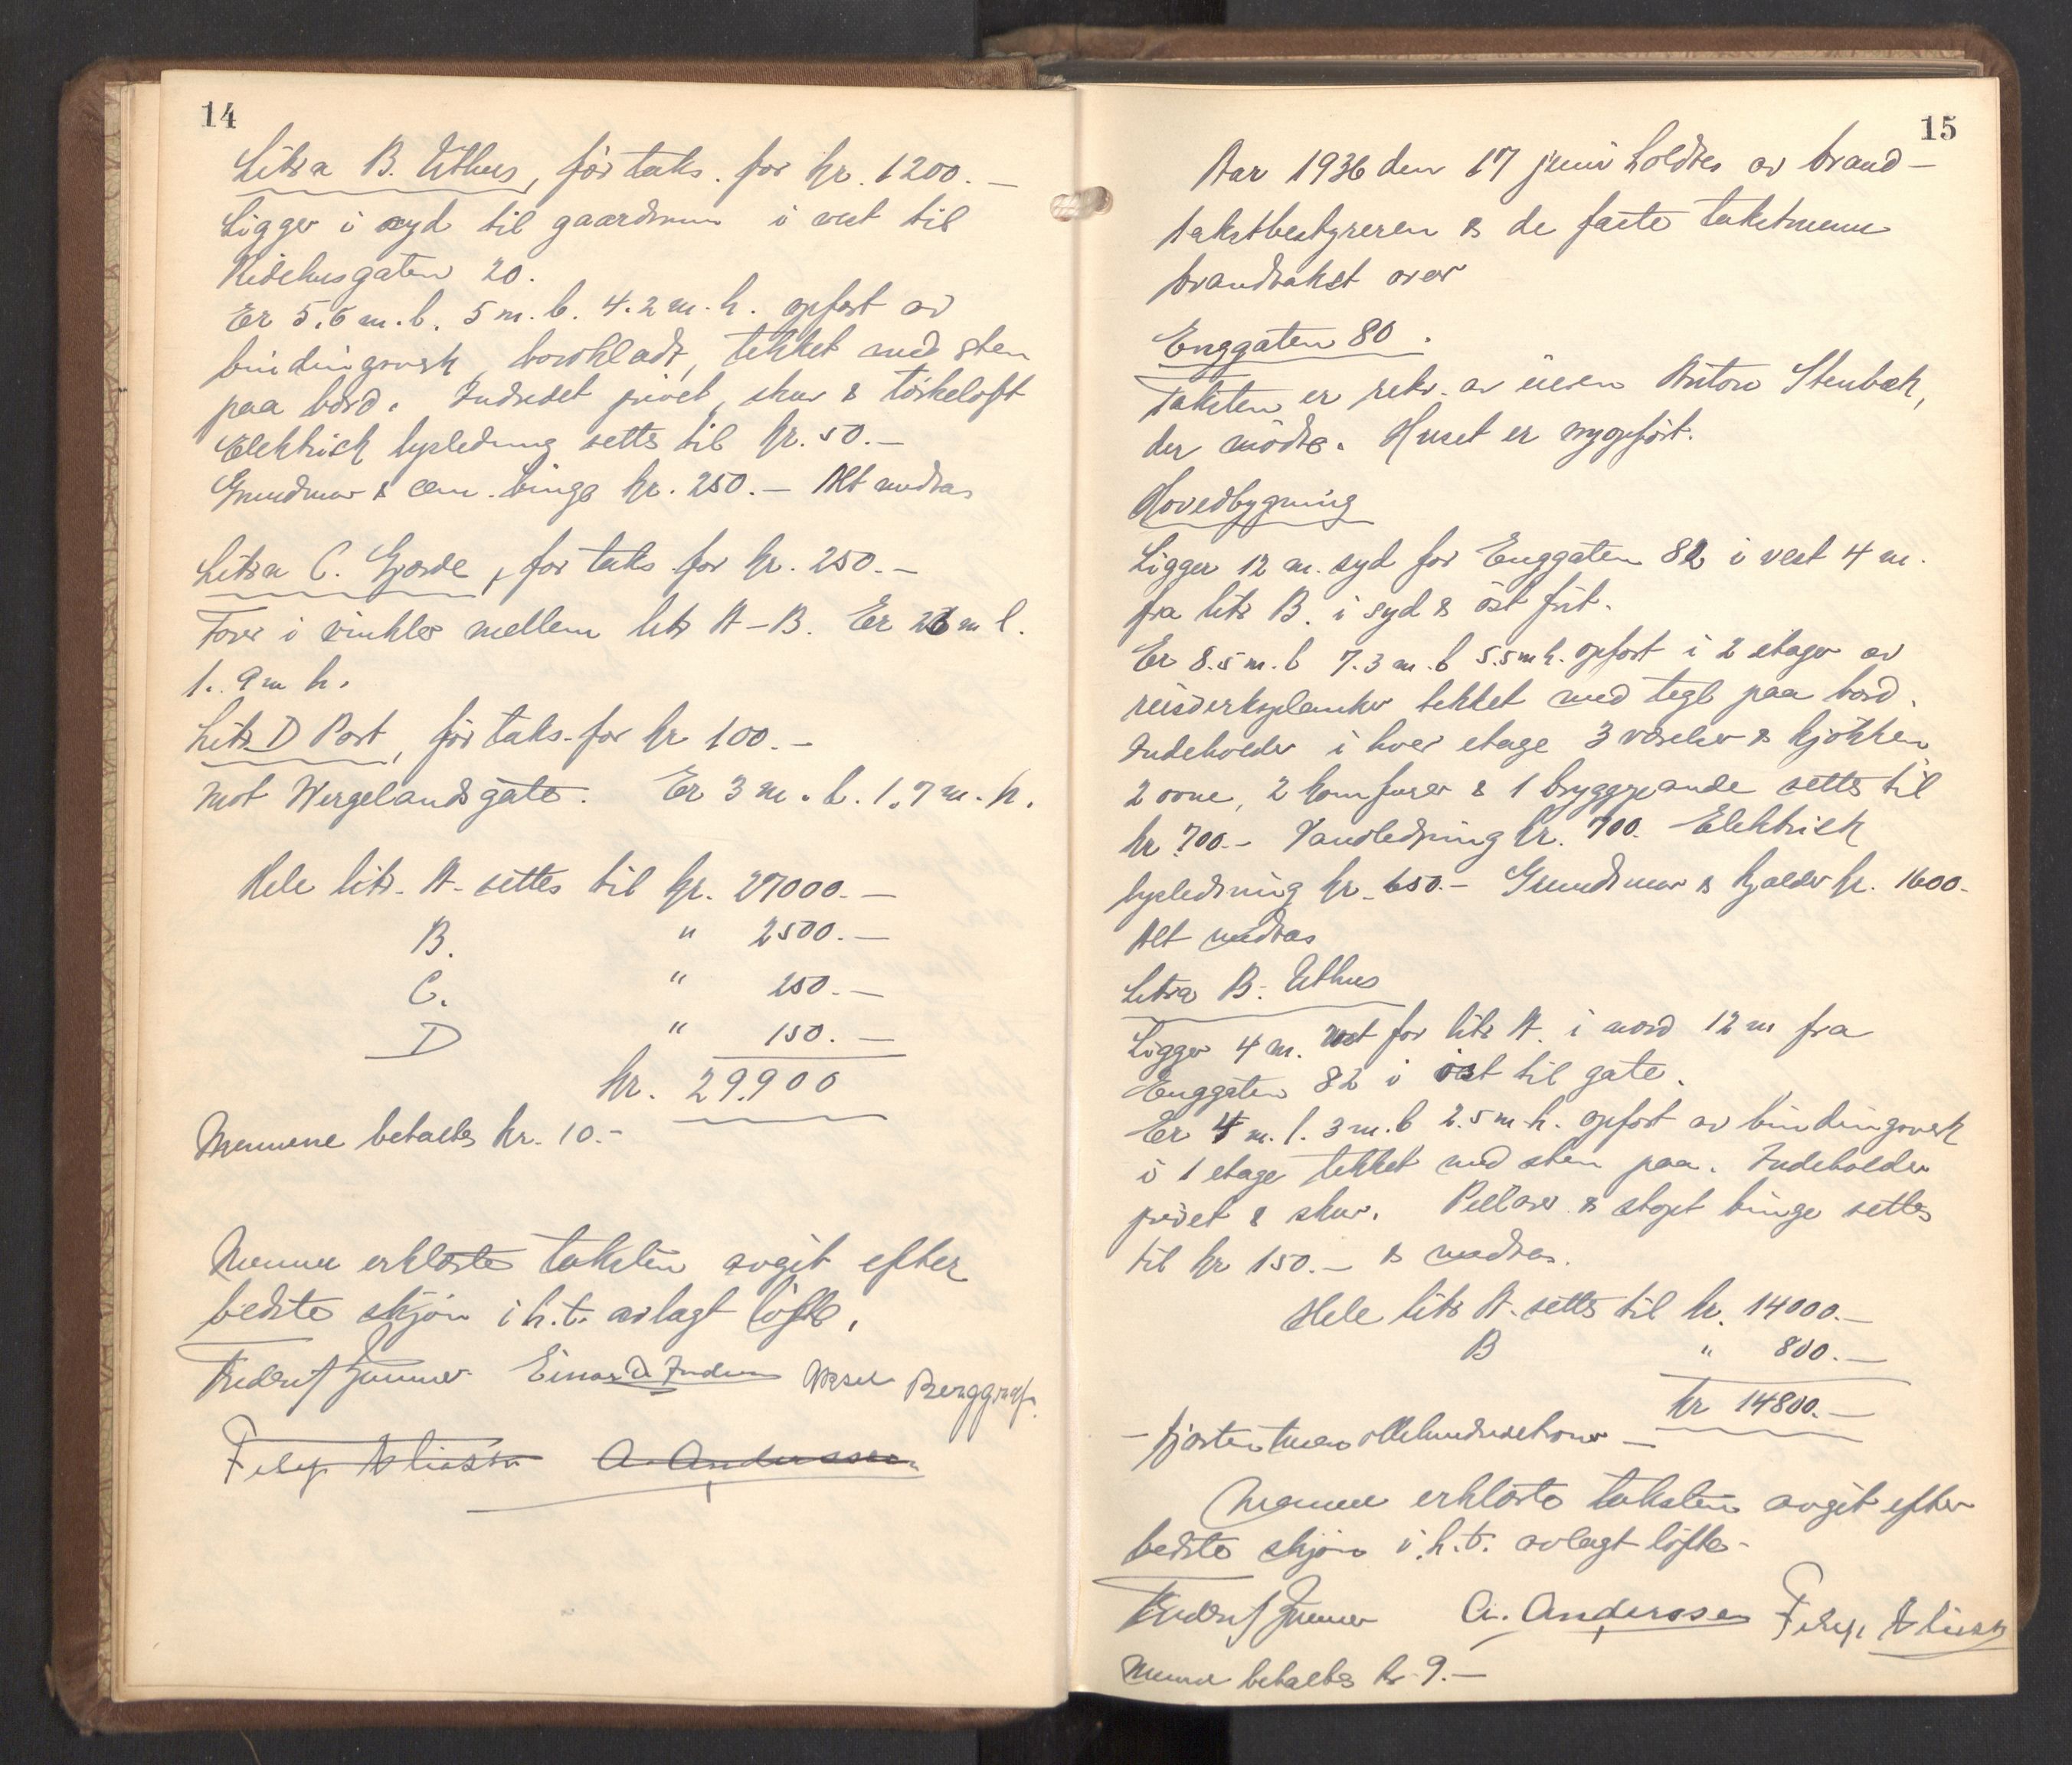 14
Litra B. Uthus, før taks. for kr. 1200.—
Ligger i syd til gaardsrum i vest til
Ridehusgaten 20.
Er 5.6 m. l. 5 m. b. 4.2 m. h. opført av
bindingsverk, bordklædt, tekket med sten
paa bord. Indredet privet, skur & tørkeloft
Elektrisk lysledning settes til kr. 50.—
Grundmur & cem. binge kr. 250.— Alt medtas
Litra C. Gjerde, før taks for kr. 250.—
i vinkler mellem litr A–B. Er m l.
1.9 m h.
Litr. D Port, før taks. for kr 100.—
mot Wergelandsgate. Er 3 m. b. 1.7 m. h.
Hele litr. A. settes til kr. 27000.—
B. " 2500.—
C. " 250.—
D " 150.—
kr. 29.900
Mennene betaltes kr. 10.—
Mennene erklærte taksten avgit efter
bedste skjøn i h. t. avlagt løfte.
Berggraf
A. Anderssen
15
Aar 1936 den 17 juni holdtes av brand-
takstbestyreren & de faste takstmenn
brandtakst over
Enggaten 80.
Taksten er rekv. av eieren Anton Stenbæk,
der mødte. Huset er nyopført.
Hovedbygning
Ligger 12 m. syd for Enggaten 82 i vest 4 m.
fra litr B. i syd & øst frit.
Er 8.5 m. l 7.3 m. b 5.5 m h. opført i 2 etager av
reisverksplanker tekket med tegl paa bord.
Indeholder i hver etage 3 værelser & kjøkken
2 ovne, 2 komfurer & 1 bryggepande settes til
kr 700.— Vandledning kr. 700. Elektrisk
lysledning kr. 650.— Grundmur & kjelder kr. 1600.
Alt medtas
Litra B. Uthus
Ligger 4 m. vest for litr A. i nord 12 m fra
Enggaten 82 i øst til gate.
Er 4 m. l. 3 m. b 2.5 m. h. opført av bindingsverk
i 1 etage tekket med sten paa. Indeholder
privet & skur. Pillarer & støpt binge settes
til kr 150.— & medtas.
Hele litr A. settes til kr. 14000.—
B " 800.—
kr 14800.—
— fjortentusenottehundredekroner —
Mennene erklærte taksten avgit efter
bedste skjøn i. h. t. avlagt løfte.
A. Anderssen
Mennene betaltes kr 9.—